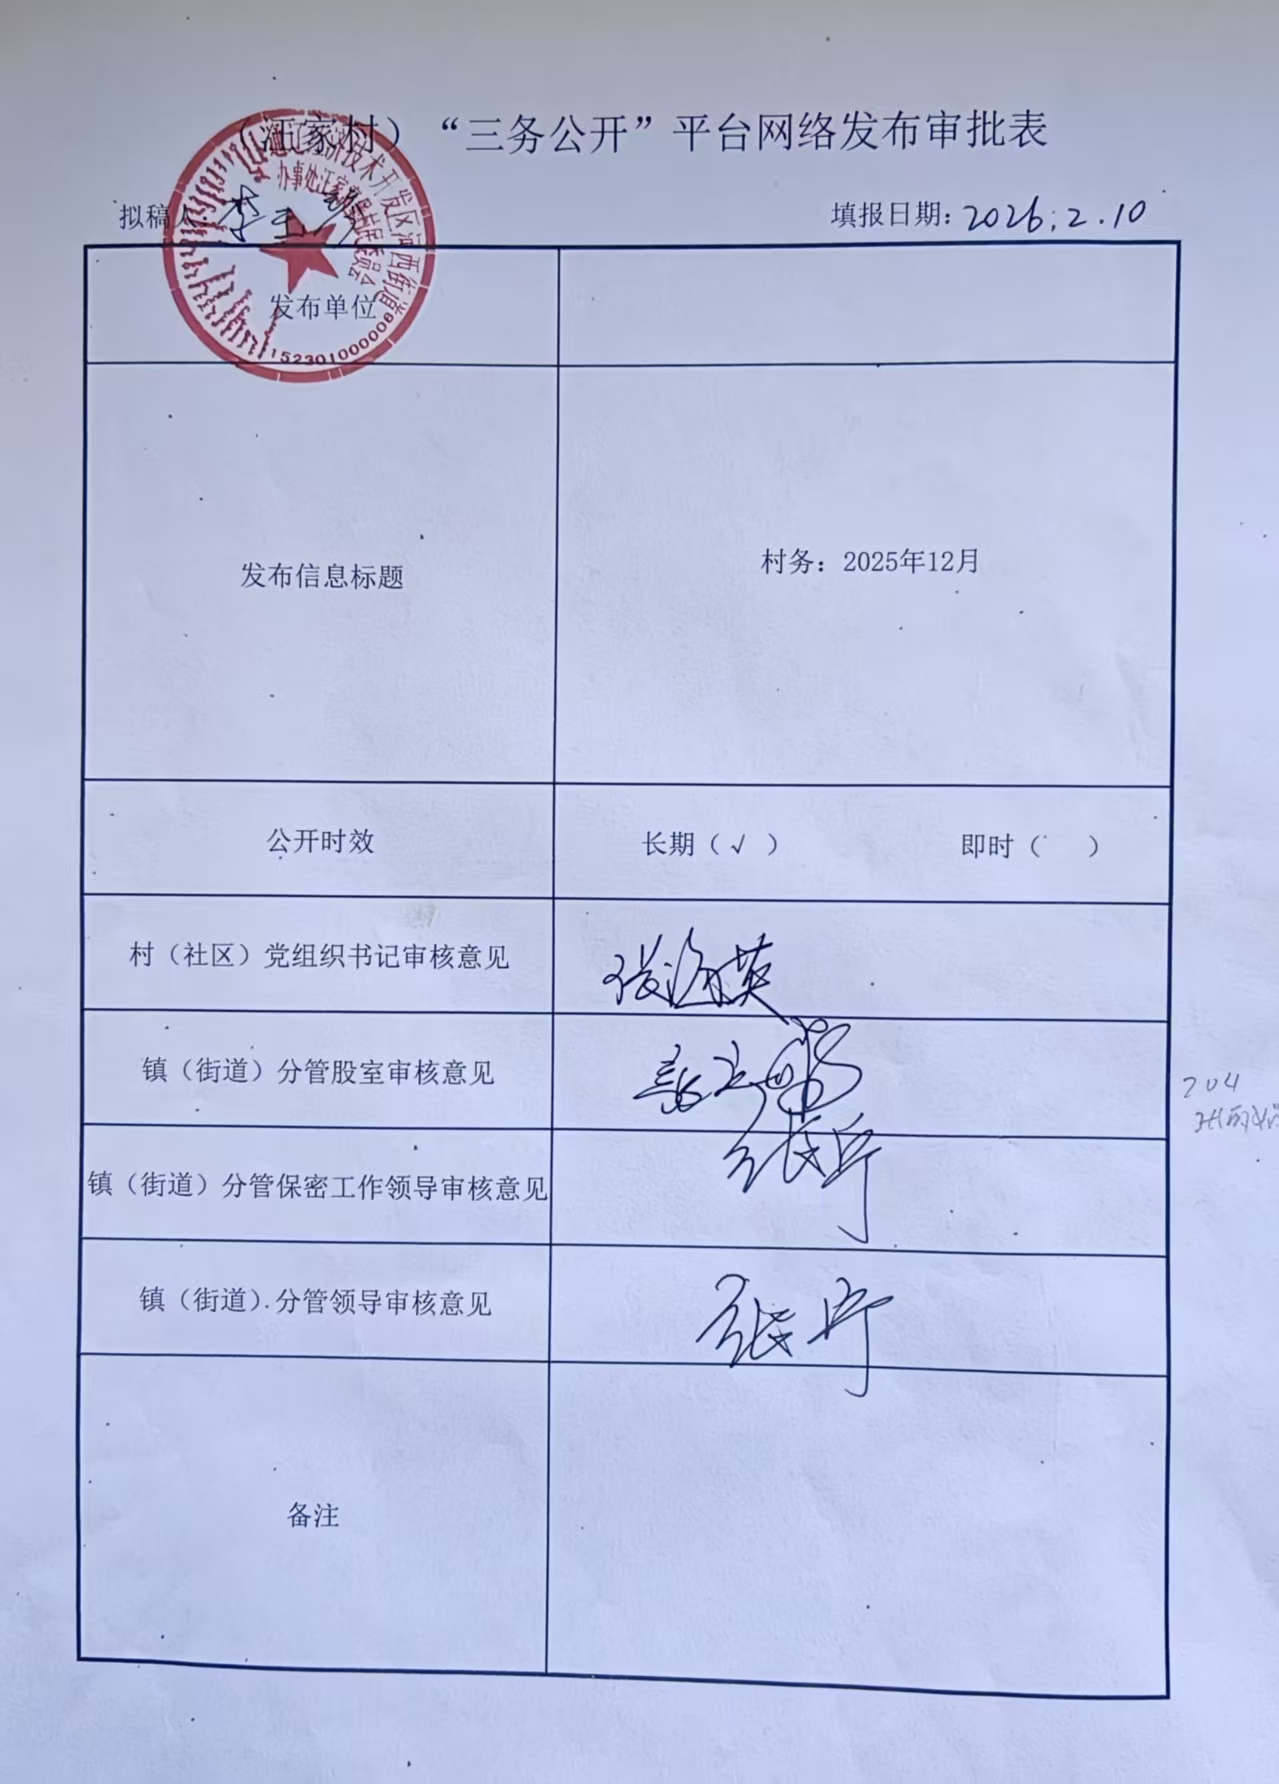 （汪家村）“三务公开”平台网络发布审批表
拟稿人：李
填报日期：2026.2.10
发布单位
发布信息标题
村务：2025年12月
公开时效
长期（√ ）
即时（ ）
村（社区）党组织书记审核意见
张海英
镇（街道）分管股室审核意见
镇（街道）分管保密工作领导审核意见
张宁
镇（街道）分管领导审核意见
张宁
备注
204
通辽经济技术开发区河西街道
办事处汪家村村民委员会
1523010000008